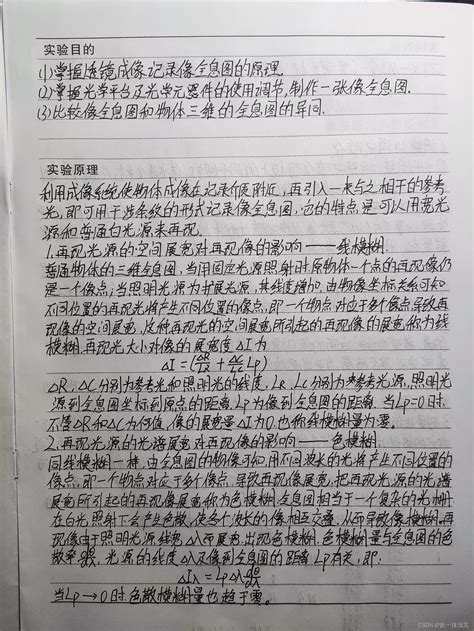 实验目的
(1)掌握透镜成像记录像全息图的原理
(2)掌握光学平台及光学元器件的使用调节,制作一张像全息图.
(3)比较像全息图和物体三维的全息图的异同.
实验原理
利用成像系统使物体成像在记录介质附近,再引入一束与之相干的参考
光,即可用干涉条纹的形式记录像全息图,它的特点是可以用宽光
源和普通白光源来再现.
1.再现光源的空间展宽对再现像的影响——线模糊.
普通物体的三维全息图,当用固定光源照射时原物体一个点的再现像仍
是一个像点,当照明光源为扩展光源,其线度增加,由物像坐标关系可知
不同位置的再现光将产生不同位置的像点,即一个物点对应于多个像点导致再
现像的空间展宽,这种再现光的空间展宽所引起的再现像的展宽称为线
模糊,再现光大小对像的展宽度ΔI为
ΔI=(ΔR/LR + ΔC/Lc)Lp
ΔR、ΔC分别为参考光和照明光的线度,LR、Lc分别为参考光源,照明光
源到全息图坐标到原点的距离,Lp为像到全息图的距离,当Lp=0时,
不管ΔR和ΔC为何值,像的展宽量ΔI为0,也称线模糊量为零。
2.再现光源的光谱展宽对再现像的影响——色模糊.
同线模糊一样,由全息图的物像可知,用不同波长的光将产生不同位置的
像点,即一个物点对应于多个像点,导致再现像展宽,把再现光源的光谱
展宽所引起的再现像展宽称为色模糊,全息图相当于一个复杂的光栅,
在白光照射下会产生色散,使各个波长的像相互交叠,从而导致像模糊,再
现像由于照明光源线宽Δλ而展宽,出现色模糊,色模糊量与全息图的色
散率dθ/dλ,光源的线度Δλ及像到全息图的距离Lp有关,即:
ΔIλ=LpΔλdθ/dλ
当Lp→0时,色散模糊量也趋于零。